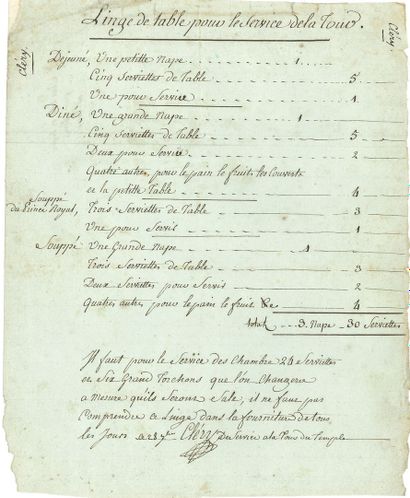 Linge de table pour le Service de la Tour.
Cléry
Cléry
Dejeuné, Une petitte Nape 1
Cinq Serviettes de Table 5
Une pour Service 1
Diné, Une grande Nape 1
Cinq Serviettes de Table 5
Deux pour Service 2
Quatre autres pour le pain le fruit les couverts
et la petitte Table 4
Souppé
du Prince Royal, Trois Serviettes de Table 3
Une pour Servis 1
Souppé Une Grande Nape 1
Trois Serviettes de Table 3
Deux Serviettes pour Servis 2
Quatre autres pour le pain le fruit &c 4
total 3 Nape 30 Serviettes
Il faut pour le Service des Chambre 24 Serviettes
et Six Grand Torchons que l'on Changera
a mesure quils Seront Sale, il ne faut pas
comprendre ce Linge dans la fourniture de tous
les Jours ce 28 Cléry du Service a la Tour du Temple